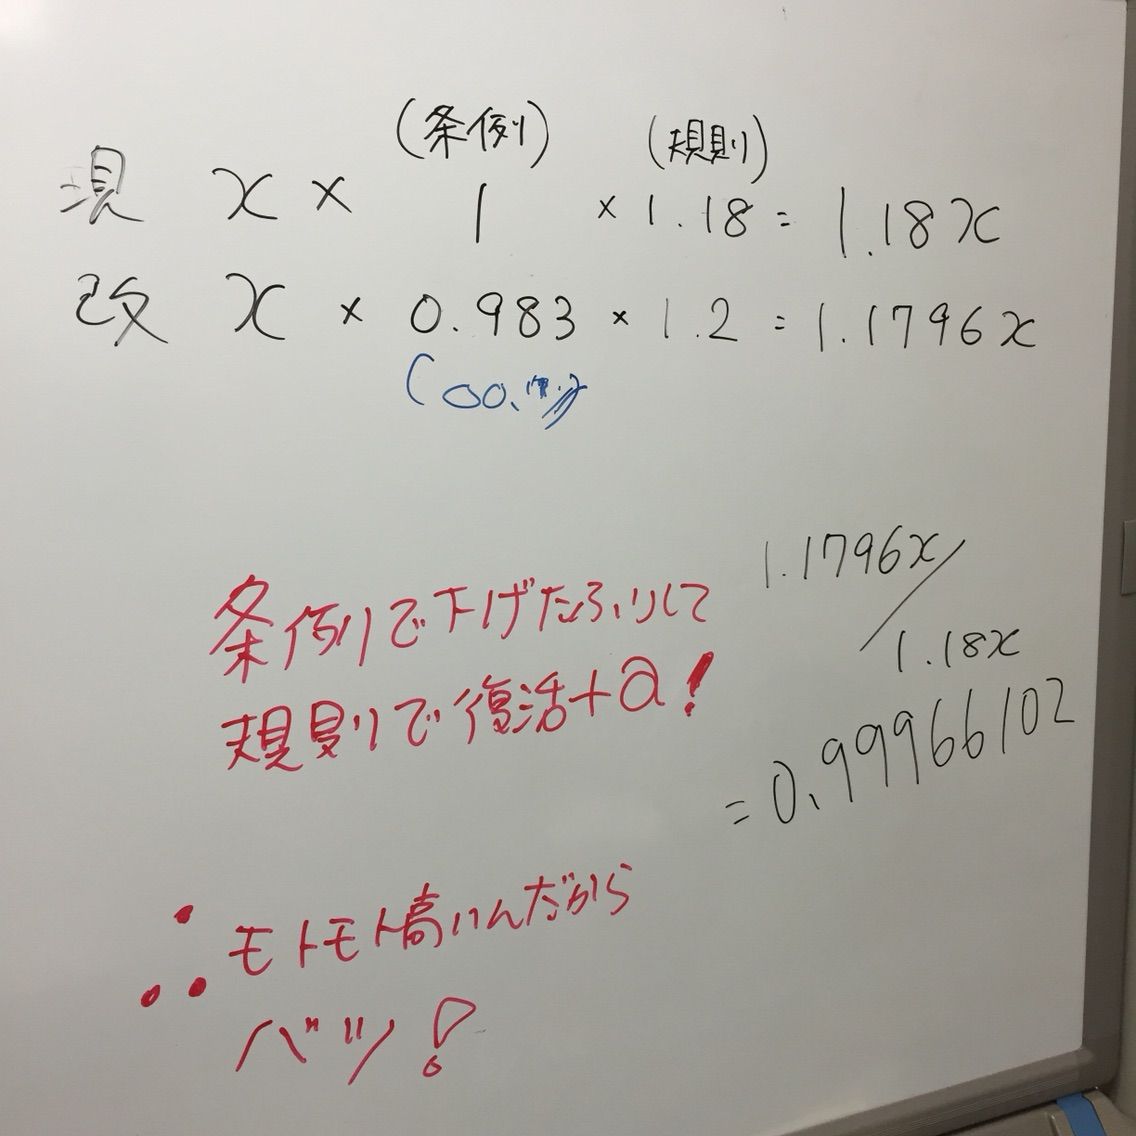 (条例) (規則)
現 x × 1 × 1.18 = 1.18x
改 x × 0.983 × 1.2 = 1.1796x
条例で下げたふりして
規則で復活+α!
1.1796x/
1.18x
=0.99966102
∴モトモト高いんだから
ベツ!